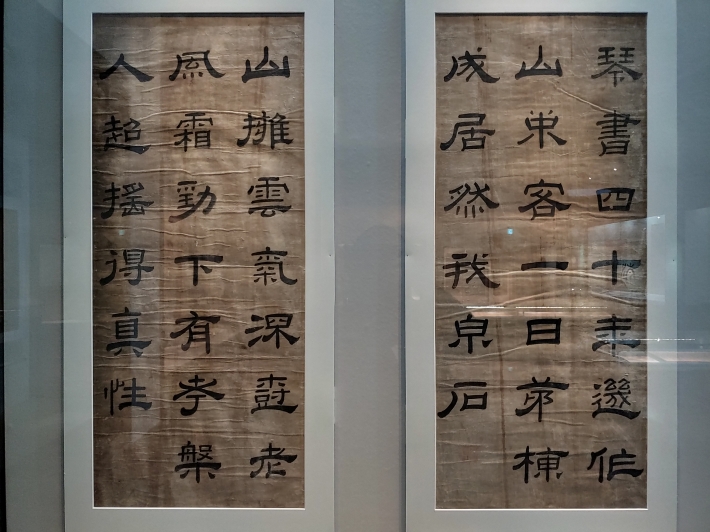 琴書四十年幾作
山中客一日茅棟
成居然我泉石
山擁雲氣深尌老
風霜勁下有考槃
人超搖得真性